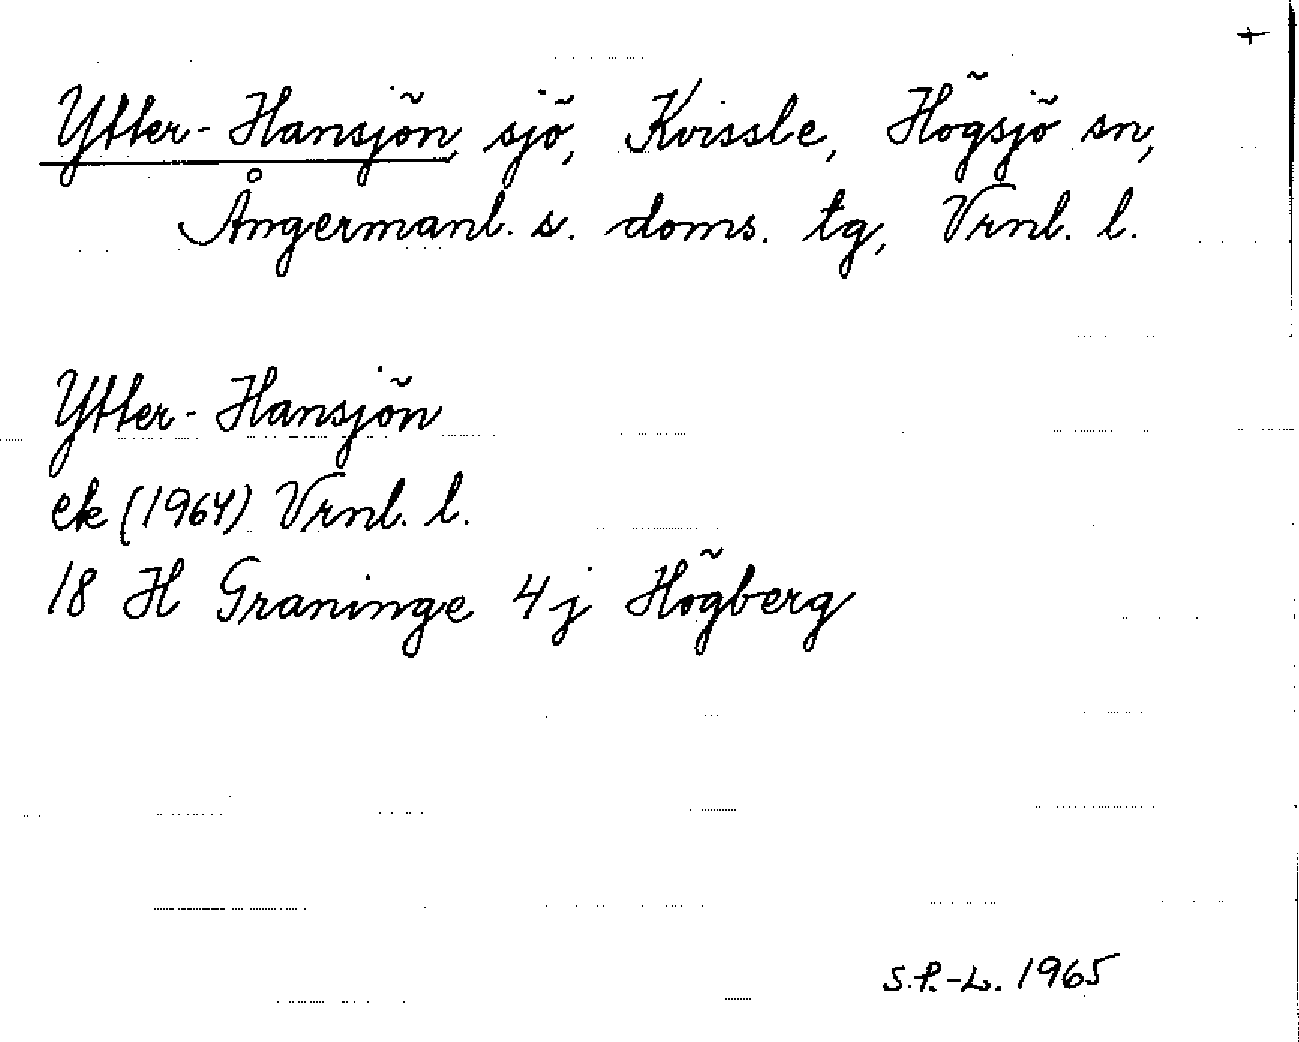 +
Ytter-Hansjön, sjö, Kvissle, Högsjö sn,
Ångermanl. s. doms. tg, Vrnl. l.
Ytter-Hansjön
ek (1964) Vrnl. l.
18 H Graninge 4j Högberg
S.P.-L. 1965